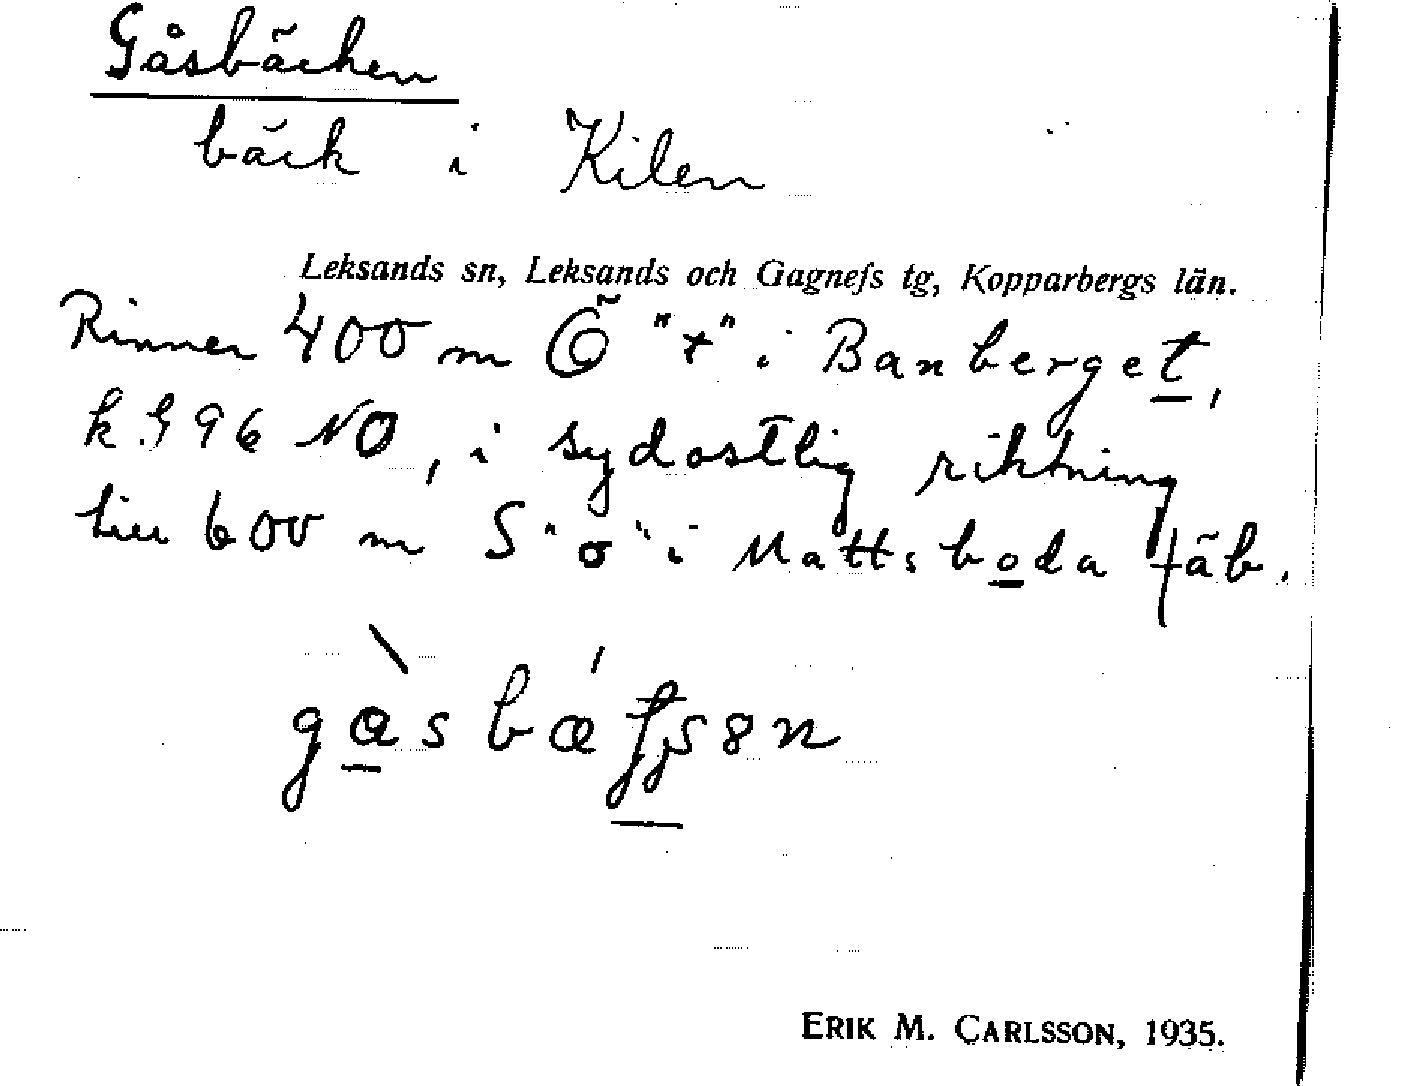 Gåsbäcken
bäck i Kilen
Leksands sn, Leksands och Gagnefs tg, Kopparbergs län.
Rinner 400 m Ö "+" i Banberget,
k G 96 NO, i sydostlig riktning
till 600 m S "o" i Mattsboda fäb.
ERIK M. CARLSSON, 1935.